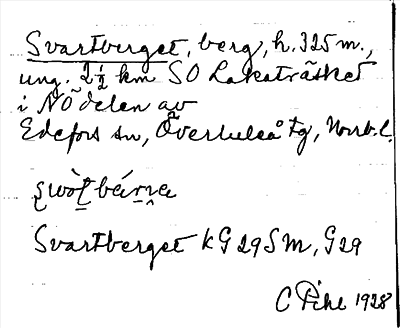 Svartberget, berg, h. 325 m.,
ung. 2½ km SO Lakaträsket
i NÖ delen av
Edefors sn, Överluleå tg, Norrb. l.
Svartberget kG 29 S M, G 29
C Pihl 1928